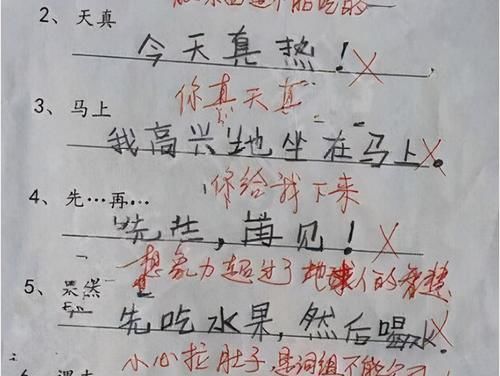 吃的
2、天真
今天真热！
你真天真
3、马上
我高兴地坐在马上。
你给我下来
4、先…再…
先生，再见！
想象力超过了地球人的智慧
5、果然
先吃水果，然后喝水。
小心拉肚子，是词组不能